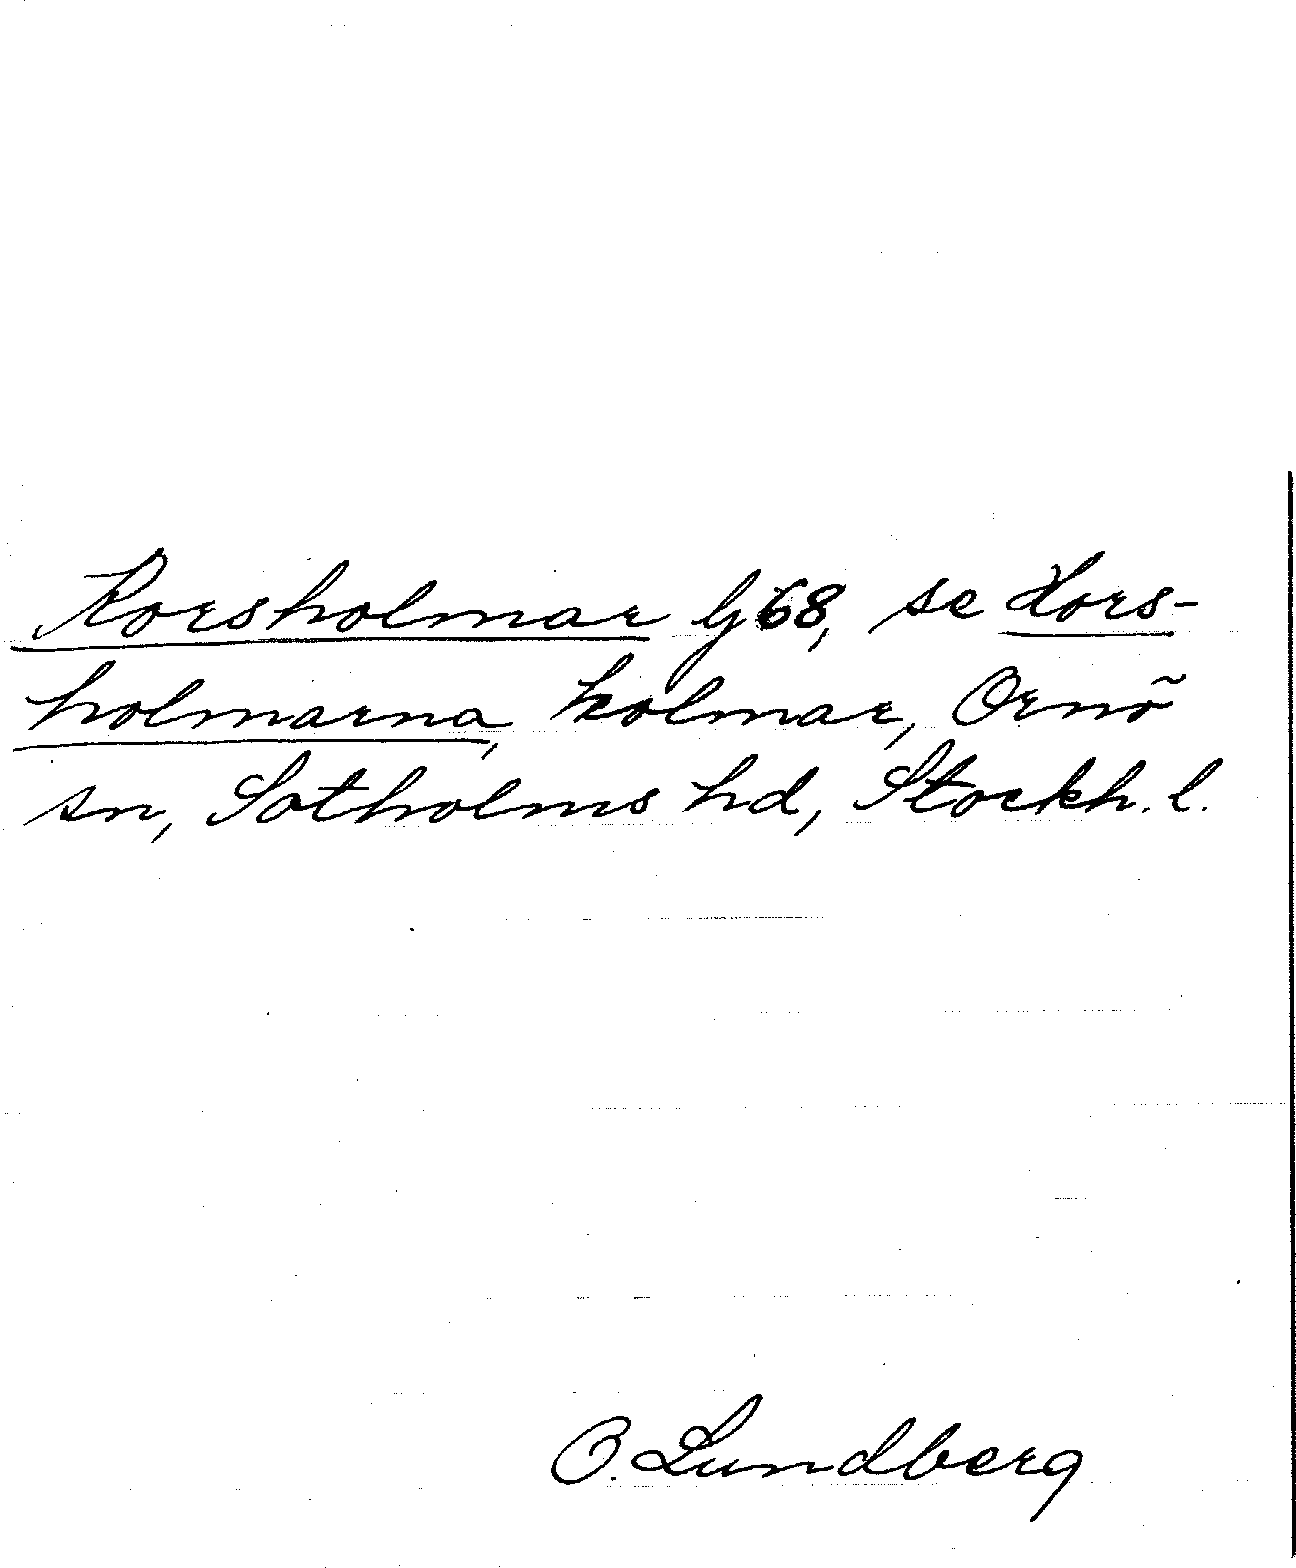 Rorsholmar 68, se
holmarna, holmar, Ornö
sn, Sotholms hd, Stockh. l.
O. Lundberg